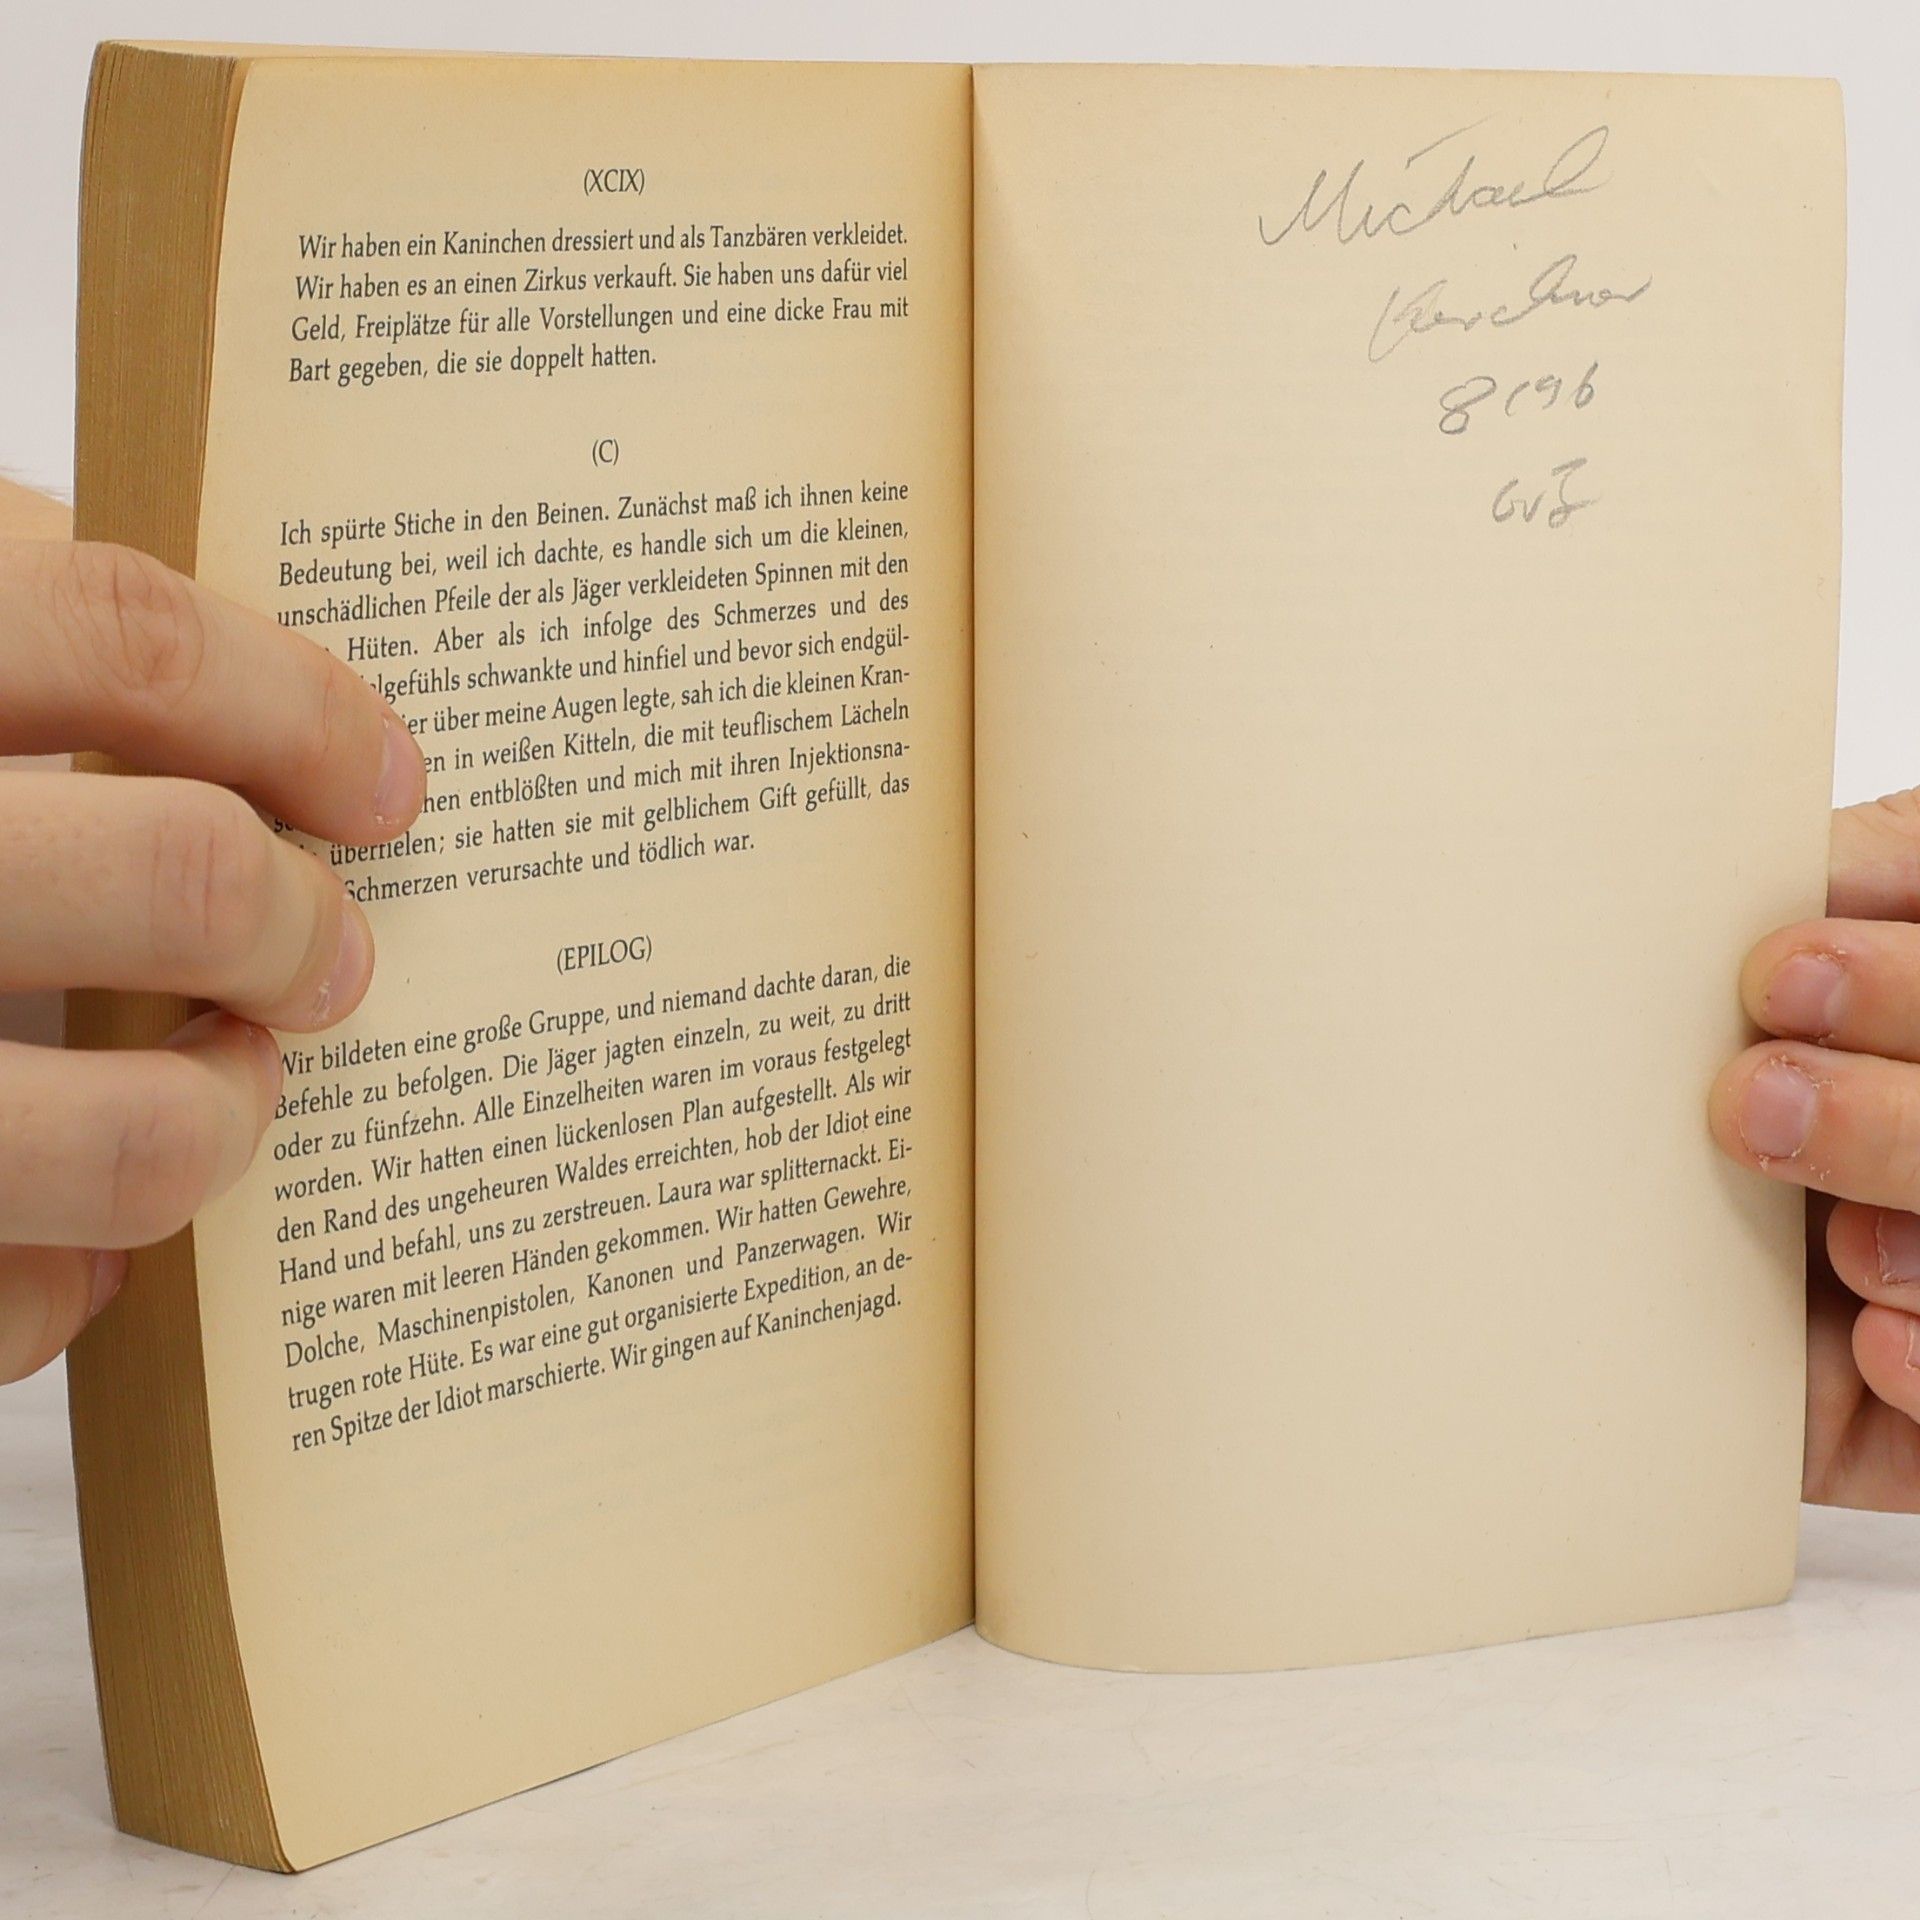 (XCIX)
Wir haben ein Kaninchen dressiert und als Tanzbären verkleidet.
Wir haben es an einen Zirkus verkauft. Sie haben uns dafür viel
Geld, Freiplätze für alle Vorstellungen und eine dicke Frau mit
Bart gegeben, die sie doppelt hatten.
(C)
Ich spürte Stiche in den Beinen. Zunächst maß ich ihnen keine
Bedeutung bei, weil ich dachte, es handle sich um die kleinen,
unschädlichen Pfeile der als Jäger verkleideten Spinnen mit den
Hüten. Aber als ich infolge des Schmerzes und des
lgefühls schwankte und hinfiel und bevor sich endgül-
ier über meine Augen legte, sah ich die kleinen Kran-
en in weißen Kitteln, die mit teuflischem Lächeln
hen entblößten und mich mit ihren Injektionsna-
überfielen; sie hatten sie mit gelblichem Gift gefüllt, das
Schmerzen verursachte und tödlich war.
(EPILOG)
Wir bildeten eine große Gruppe, und niemand dachte daran, die
Befehle zu befolgen. Die Jäger jagten einzeln, zu weit, zu dritt
oder zu fünfzehn. Alle Einzelheiten waren im voraus festgelegt
worden. Wir hatten einen lückenlosen Plan aufgestellt. Als wir
den Rand des ungeheuren Waldes erreichten, hob der Idiot eine
Hand und befahl, uns zu zerstreuen. Laura war splitternackt. Ei-
nige waren mit leeren Händen gekommen. Wir hatten Gewehre,
Dolche, Maschinenpistolen, Kanonen und Panzerwagen. Wir
trugen rote Hüte. Es war eine gut organisierte Expedition, an de-
ren Spitze der Idiot marschierte. Wir gingen auf Kaninchenjagd.
Michael
8196